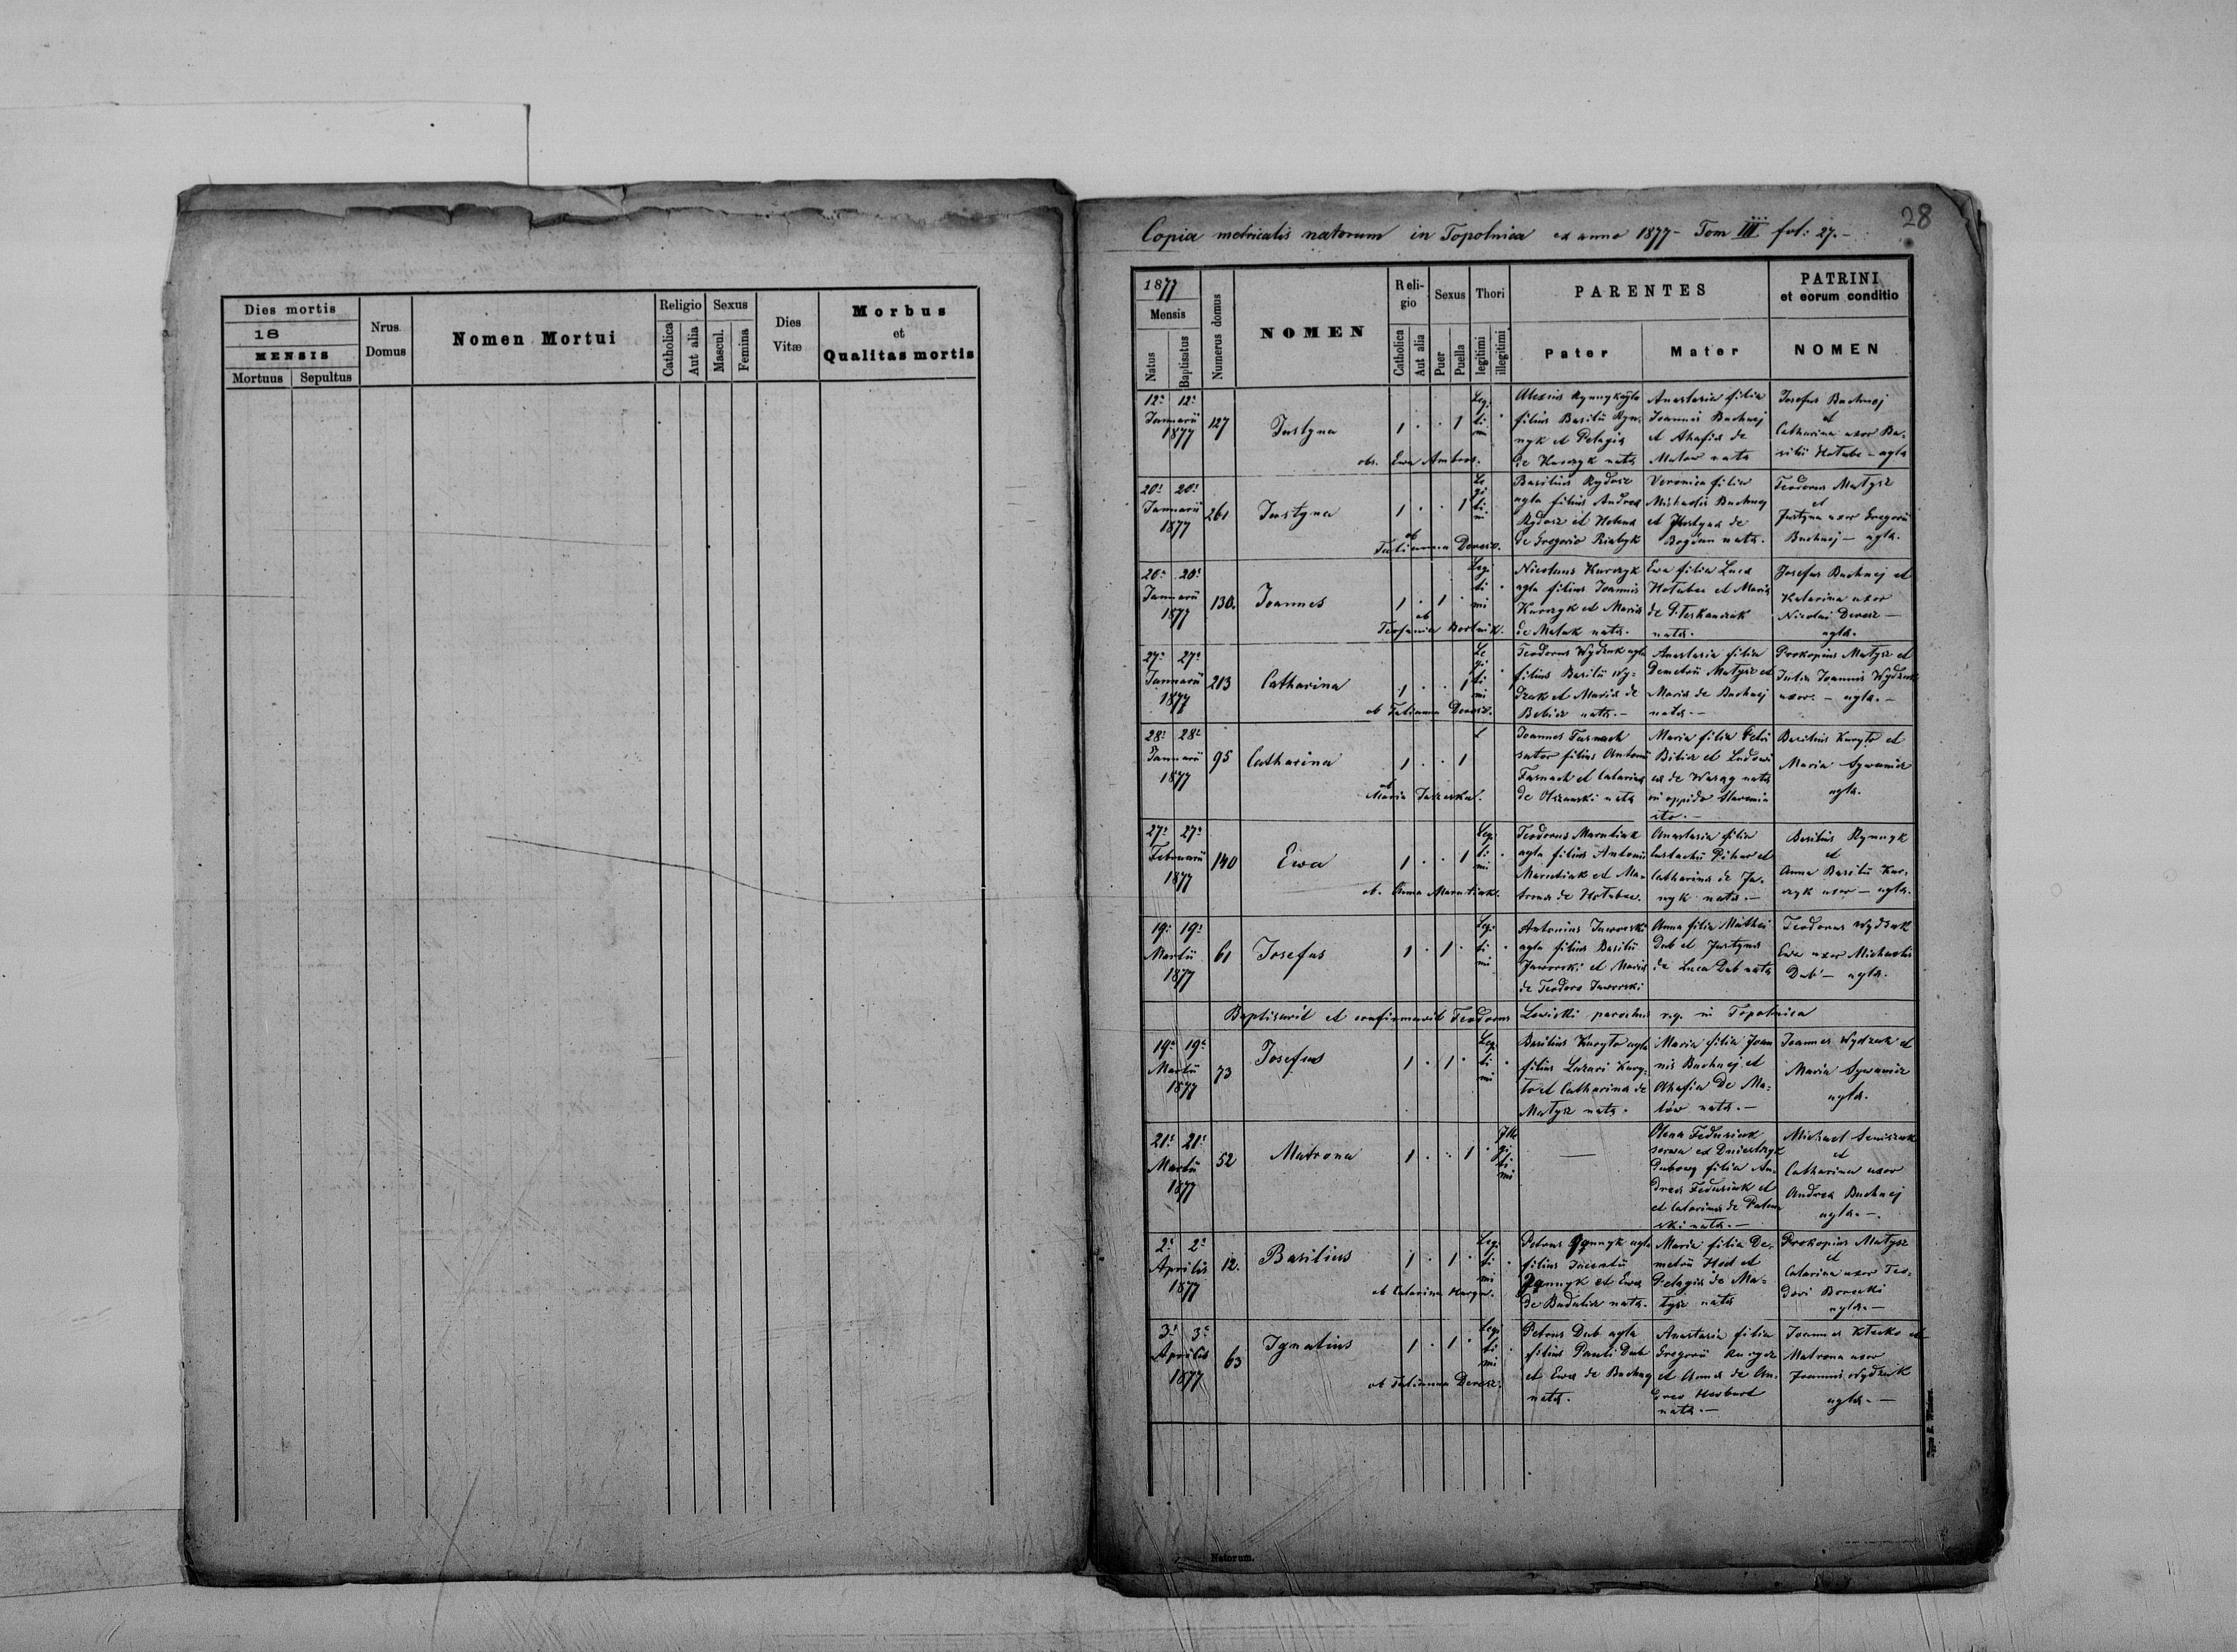 Dies mortis
18
MENSIS
Mortuus Sepultus
Nrus
Domus
Nomen Mortui
Religio
Catholica
Aut alia
Sexus
Mascul.
Femina
Dies
Vitæ
Morbus
et
Qualitas mortis
28
Copia metricalis natorum in Topolnica ex anno 1877 - Tom III fol: 27. -
1877
Mensis
Natus
Baptisatus
Numerus domus
NOMEN
Reli-
gio
Catholica
Aut alia
Sexus
Puer
Puella
Thori
legitimi
illegitimi
PARENTES
Pater
Mater
PATRINI
et eorum conditio
NOMEN
12a 12a
Januarii
1877
127
Justyna
1 . . 1
Legi
ti
mi
obs. Ewa Ambros.
Alexius
filius Basilii Ryn-
nyk et Pelagia
de Kurczyk nata
Anastasia filia
Joannis Buchnej
et Ahafia de
Matow nata
Josefus Buchnej
et
Catharina uxor Ba-
silii Hołube - agla
20a 20a
Januarii
1877
261
Justyna
1 . . 1
Le
gi
ti
mi
ob
Tatianna Deresz.
Basilius Rydosz
agla filius Andrea
Rydosz et Helena
de Gregorio Riabyk
Veronica filia
Michaelis Buchnej
et Justyna de
Bogdan nata.
Teodorus Matysz
et
Justyna uxor Gregorii
Buchnej - agla.
20a 20a
Januarii
1877
130.
Joannes
1 . 1 .
Legi
ti
mi
ob
Teofania Bortnik.
Nicolaus Kurczyk
agla filius Joannis
Kurczyk et Maria
de Matuk nata.
Ewa filia Luca
Hołubec et Maria
de
nata.
Josefus Buchnej et
Katarina uxor
Nicolai Deresz -
agla.
27a 27a
Januarii
1877
213
Catharina
1 . . 1
Le
gi
ti
mi
ob Tatianna Deresz.
Teodorus Wydzak agla
filius Basilii Wy-
dzak et Maria de
Bobiar nata. -
Anastasia filia
Demetrii Matysz et
Maria de Buchnej
nata. -
Prokopius Matysz et
Julia Joannis Wydzak
uxor. - agla. -
28a 28a
Januarii
1877
95
Catharina
1 . . 1
ob
Maria Jaszeska.
Joannes Tarnach
sutor filius Antonii
Tarnach et Catarina
de Olszanski nata
Maria filia Petri
Bilia et Ludowi
ca de nata
in oppido
Basilius Kuryło et
Maria Sywanicz
agla.
27a 27a
Februarii
1877
140
Ewa
1 . . 1
Legi
ti
mi
ob. Anna Marutiak.
Teodorus Marutiak
agla filius Antonii
Marutiak et Ma-
trona de Hołubec.
Anastasia filia
Eustachii Pihur et
Catharina de Ja-
nyk nata. -
Basilius Rynnyk
et
Anna Basilii Kur-
czyk uxor - agla.
19a 19a
Martii
1877
61
Josefus
1 . 1 .
Legi
ti
mi
Antonius Jaworski
agla filius Basilii
Jaworski et Maria
de Teodoro Jaworski
Anna filia Mathei
Dub et Justyna
de Luca Dub nata
Teodorus Wydzak
Ewa uxor Michaelis
Dub - agla.
Baptisavit et confirmavit Teodorus Lewicki parochus r.g. in Topolnica
19a 19a
Martii
1877
73
Josefus
1 . 1 .
Legi
ti
mi
Basilius Kuryło agla
filius Lazari Kury-
ło et Catharina de
Matysz nata.
Maria filia Joan
nis Buchnej et
Ahafia de Ma-
tów nata. -
Joannes Wydzak et
Maria Sywanicz
agla.
21a 21a
Martii
1877
52
Matrona
1 . . 1 .
Ille
gi
ti
mi
-
Olena Fedusiak
serva ex Dniestrzyk
Dubowy filia An-
drea Fedusiak et
et Catarina de
nata. -
Michael
et
Catharina uxor
Andrea Buchnej
agla. -
2a 2a
Aprilis
1877
12.
Basilius
1 . 1 .
Legi
ti
mi
ob Catarina
Petrus Rynnyk agla
filius
Rynnyk et Ewa
de Budulia nata.
Maria filia De-
metrii Hod et
Pelagia de Ma-
tysz nata
Prokopius Matysz
et
Catarina uxor Teo-
dori Borecki
agla. -
3a 3a
Aprilis
1877
63
Ignatius
1 . 1 .
Legi
ti
mi
ob Tatianna Deresz.
Petrus Dub agla
filius Pauli Dub
et Ewa de Buchnej
nata.
Anastasia filia
Gregorii
et Anna de An-
drea Herburt
nata. -
Joannes Klecko et
Matrona uxor
Joannis Wydzak
agla. -
Natorum.